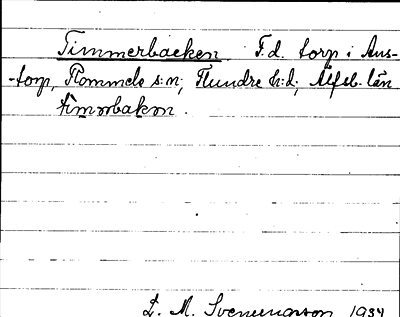 Timmerbacken. F.d. torp i Aus-
-torp, Rommele s:n; Flundre h:d; Älfsb. län
timərbakən.
L. M. Svenungsson 1934